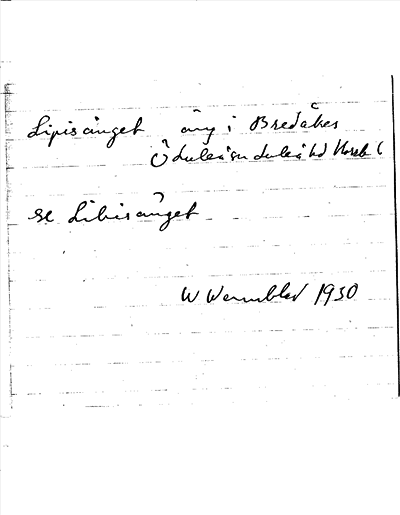 Lipisänget äng i Bredåkers
Ö Luleå sn Luleå td Norrb l
se Libisänget
W Wennblad 1930